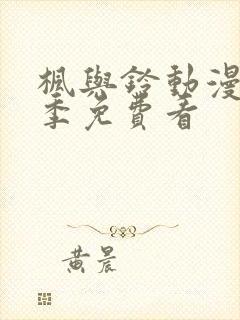 楓與鈴動漫
季免費看
黃晨